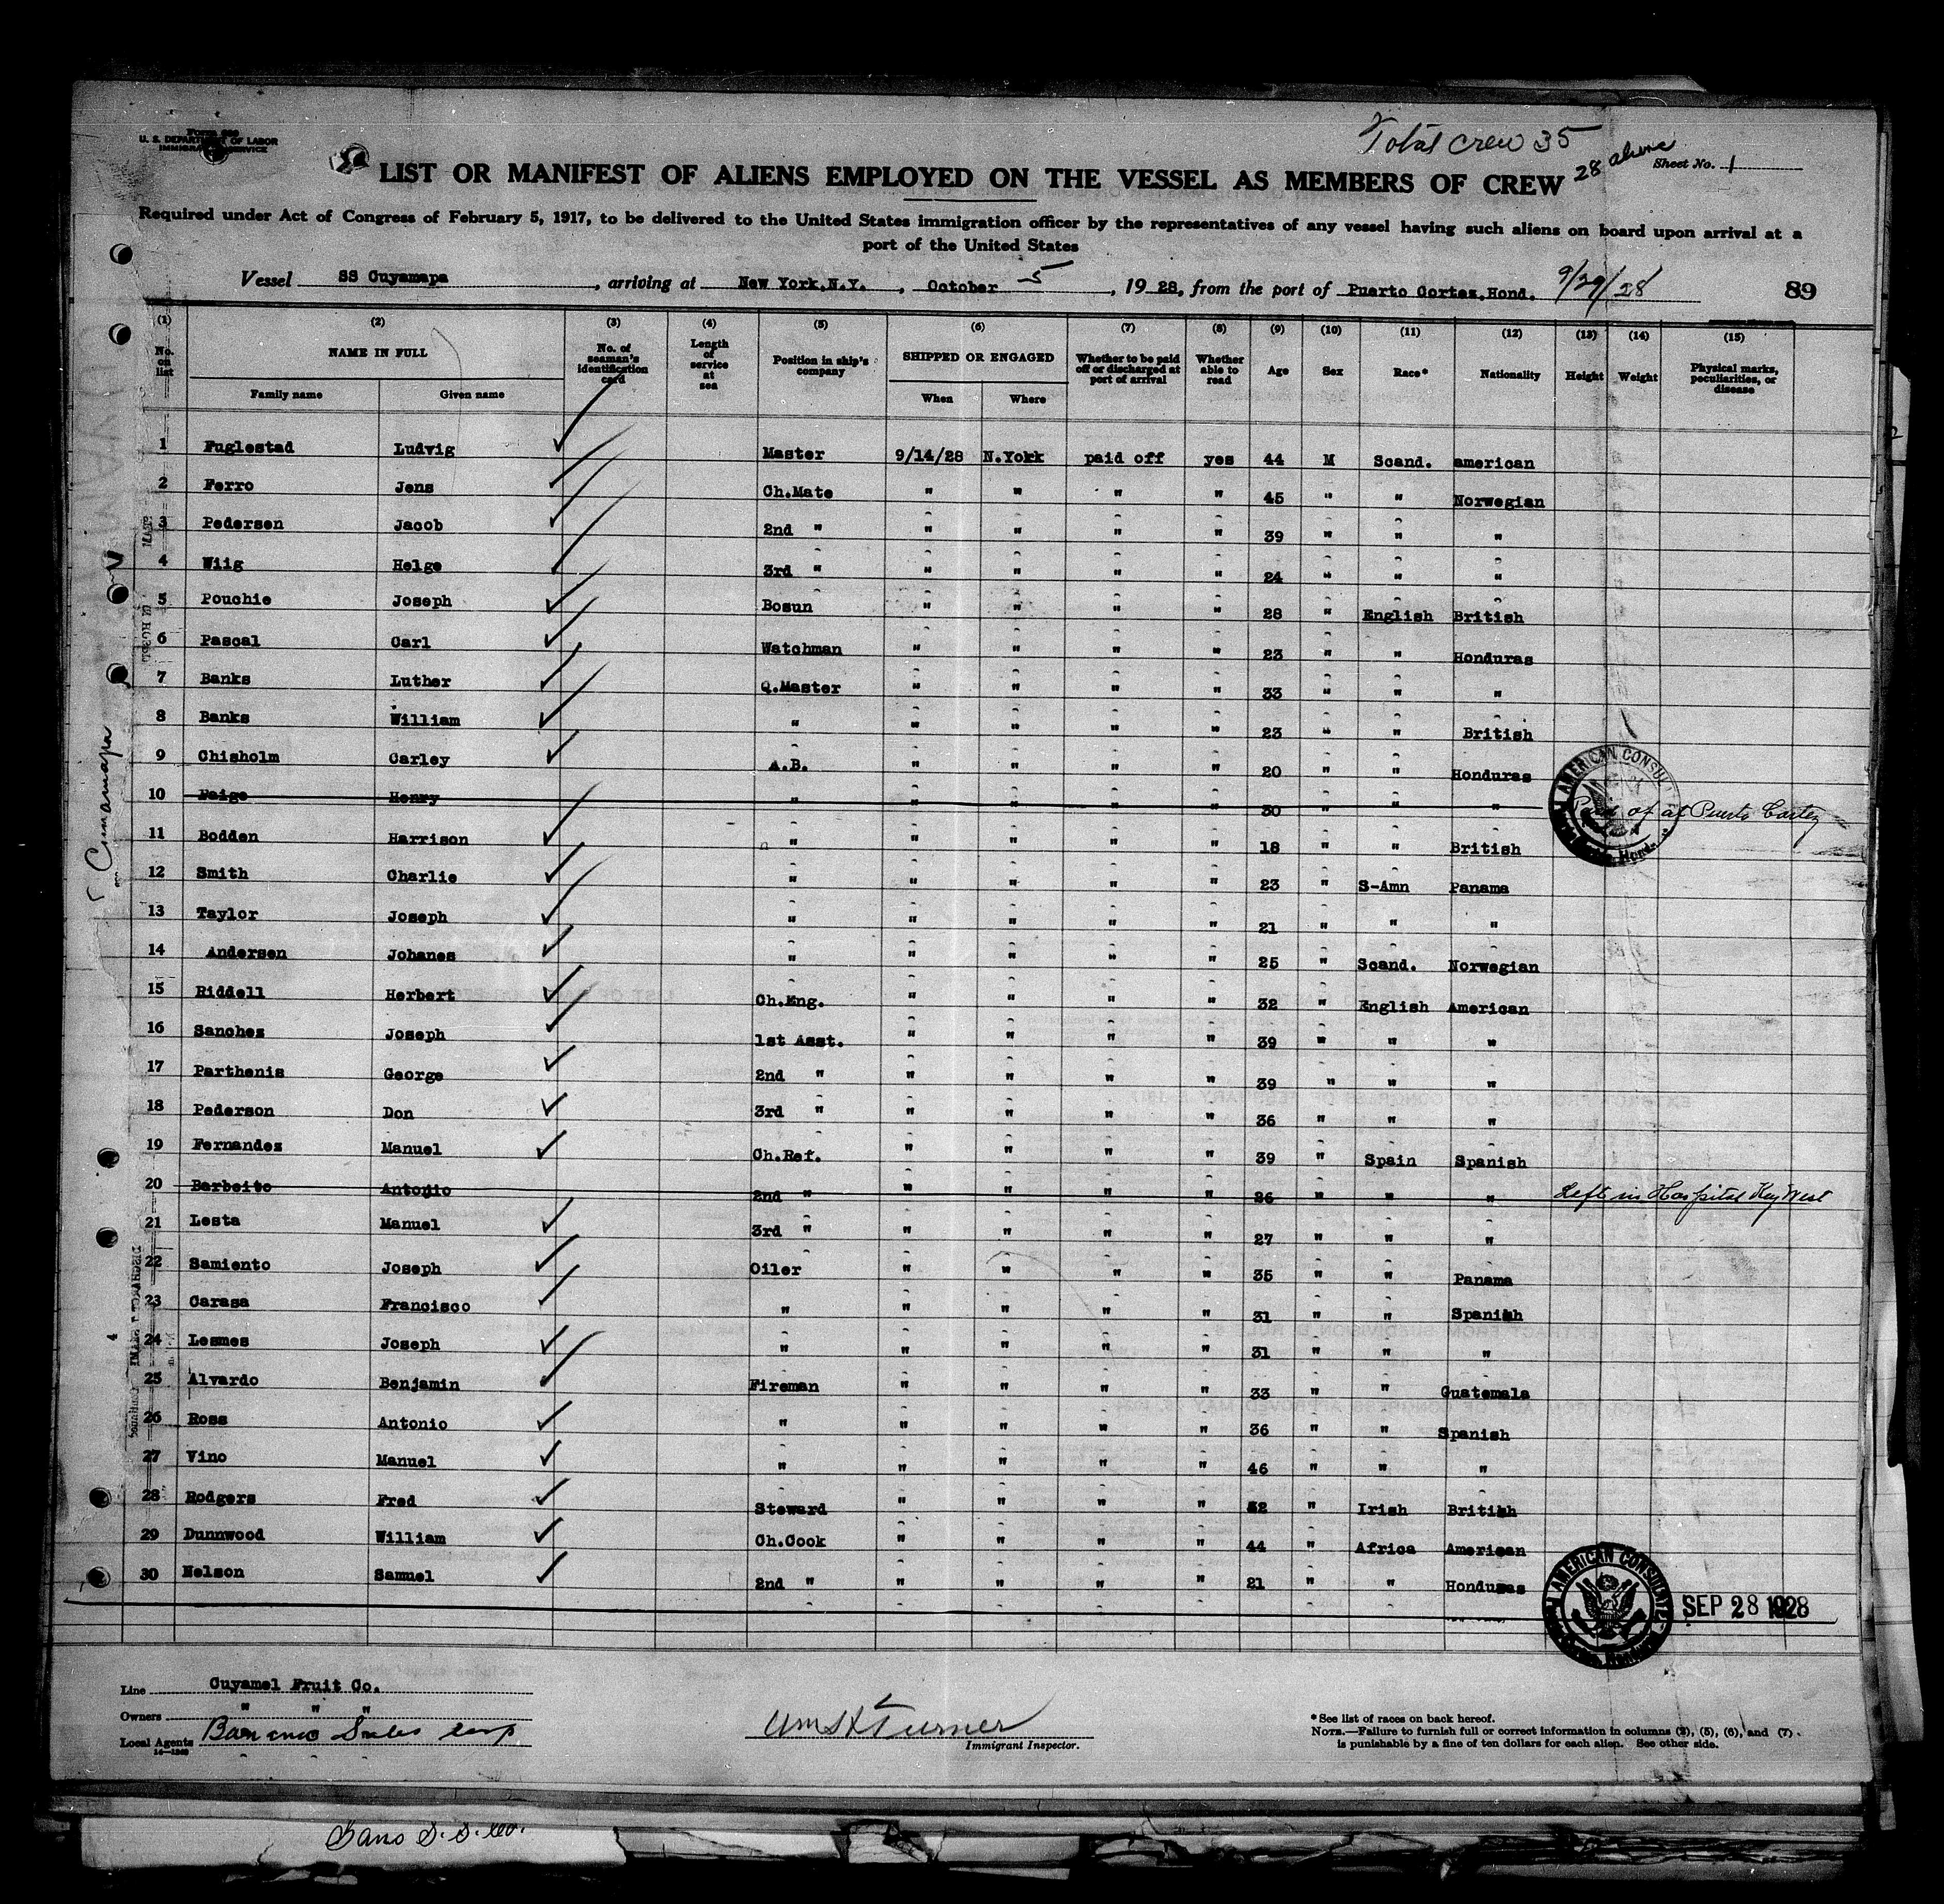 Form 689
U. S. DEPARTMENT OF LABOR
IMMIGRATION SERVICE
Total crew 35
28 aliens
Sheet No. 1
LIST OR MANIFEST OF ALIENS EMPLOYED ON THE VESSEL AS MEMBERS OF CREW
Required under Act of Congress of February 5, 1917, to be delivered to the United States immigration officer by the representatives of any vessel having such aliens on board upon arrival at a
port of the United States
Vessel SS Cuyamapa, arriving at New York,N.Y., October 5, 1928, from the port of Puerto Cortez,Hond. 9/29/28
89
(1) (2) (3) (4) (5) (6) (7) (8) (9) (10) (11) (12) (13) (14) (15)
No. on list NAME IN FULL No. of seaman's identification card Length of service at sea Position in ship's company SHIPPED OR ENGAGED Whether to be paid off or discharged at port of arrival Whether able to read Age Sex Race* Nationality Height Weight Physical marks, peculiarities, or disease
Family name Given name When Where
1 Fuglestad Ludvig Master 9/14/28 N.York paid off yes 44 M Scand. american
2 Ferro Jens Ch.Mate " " " " 45 " " Norwegian
3 Pedersen Jacob 2nd " " " " " 39 " " "
4 Wiig Helge 3rd " " " " " 24 " " "
5 Pouchie Joseph Bosun " " " " 28 " English British
6 Pascal Carl Watchman " " " " 23 " " Honduras
7 Banks Luther Q.Master " " " " 33 " " "
8 Banks William " " " " " 23 " " British
9 Chisholm Carley A.B. " " " " 20 " " Honduras
10 Paige Henry " " " " " 30 " " " Paid of at Puerto Cortez
11 Bodden Harrison " " " " " 18 " " British
12 Smith Charlie " " " " " 23 " S-Amn Panama
13 Taylor Joseph " " " " " 21 " " "
14 Andersen Johanes " " " " " 25 " Scand. Norwegian
15 Riddell Herbert Ch.Eng. " " " " 32 " English American
16 Sanchez Joseph 1st Asst. " " " " 39 " " "
17 Parthenis George 2nd " " " " " 39 " " "
18 Pederson Don 3rd " " " " " 36 " " "
19 Fernandez Manuel Ch.Ref. " " " " 39 " Spain Spanish
20 Barbeito Antonio 2nd " " " " " 26 " " " Left in Hospital Key West
21 Lesta Manuel 3rd " " " " " 27 " " "
22 Samiento Joseph Oiler " " " " 35 " " Panama
23 Carasa Francisco " " " " " 31 " " Spanish
24 Lesmes Joseph " " " " " 31 " " "
25 Alvardo Benjamin Fireman " " " " 33 " " Guatemala
26 Ross Antonio " " " " " 36 " " Spanish
27 Vino Manuel " " " " " 46 " " "
28 Rodgers Fred Steward " " " " 52 " Irish British
29 Dunnwood William Ch.Cook " " " " 44 " Africa American
30 Nelson Samuel 2nd " " " " " 21 " " Honduras
AMERICAN CONSULATE
SEP 28 1928
Line Cuyamel Fruit Co.
Owners " " "
Local Agents Banana Sales Corp
14—1240
Wm S K Turner
Immigrant Inspector.
*See list of races on back hereof.
NOTE.—Failure to furnish full or correct information in columns (2), (5), (6), and (7)
is punishable by a fine of ten dollars for each alien. See other side.